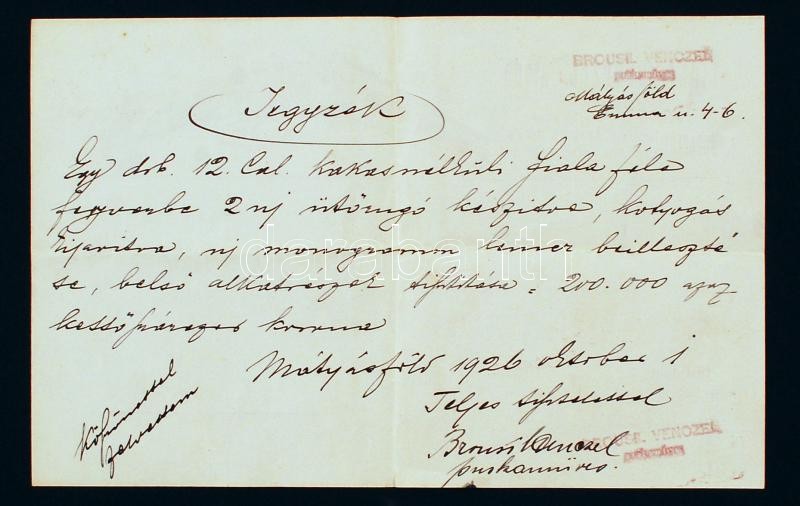 BROUSIL VENCZEL
puskaműves
Mátyásföld
Emma u. 4-6.
Jegyzék
Egy drb. 12. Cal. kakasnélküli Fiala féle
fegyverbe 2 uj ütőrugó készitve, kotyogás
kijavitva, uj monogramm lemez beilleszté
se, belső alkatrészek tisztitása = 200.000 azaz
kettőszázezer korona
Mátyásföld 1926 oktober 1
Teljes tisztelettel
Brousil Venczel
puskaműves.
BROUSIL VENCZEL
puskaműves
Köszönettel
felvettem
darabanth